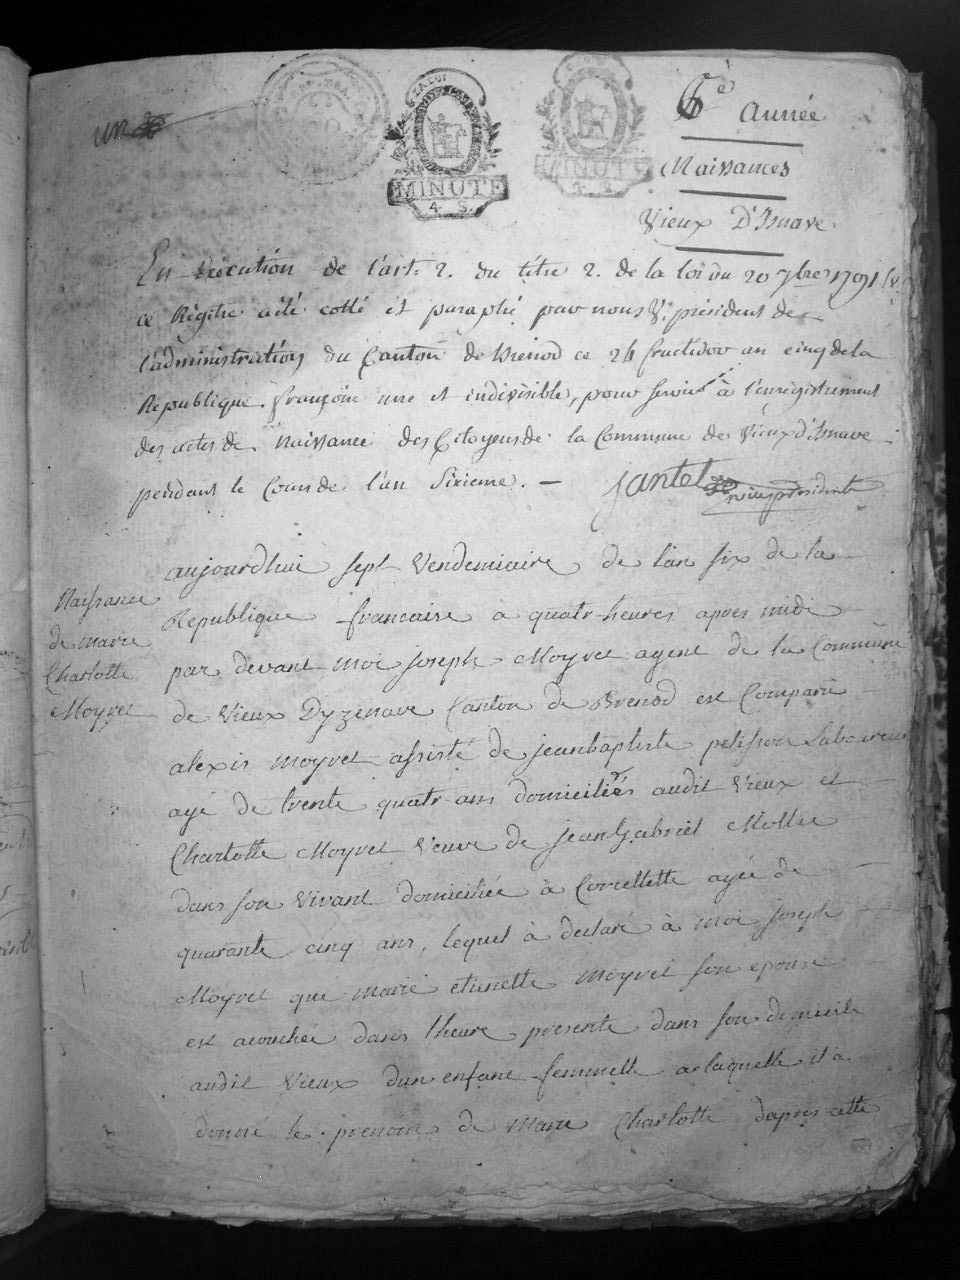 un
LA LOI
MINUTE
4. S.
MINUTE
4. S.
6e Année
Naissances
Vieux D'Isnave
En Exécution de l'art. 2. du titre 2. de la loi du 20 7bre 1791
ce Régitre a été cotté et paraphé par nous V. président de
l'administration du Canton de Brenod ce 24 fructidor an cinq de la
Republique françoise une et indivisible, pour servir à l'enregistrement
des actes de Naissance des Citoyens de la Commune de Vieux d'Isnave
pendant le Cours de l'an Sixieme. —
Jantet vice président
Naissance
de marie
Charlotte
Moyret
aujourdhui sept Vendemiaire de lan six de la
Republique francaise a quatr heures apres midi
par devant moi joseph Moyret agent de la Commune
de Vieux Dyzenave Canton de Brenod est Comparu
alexis moyret assisté de jeanbaptiste pelisson Laboureur
agé de trente quatr ans domiciliés audit Vieux et
Charlotte Moyret Veuve de jean Gabriel Mollie
dans son vivant domiciliée à Corcellette agée de
quarante cinq ans, lequel à declaré à moi joseph
Moyret que marie etienette moyret son epouse
est acouchée dans lheure presente dans son domicile
audit Vieux dun enfant femmelle a laquelle il à
donné le prenom de Marie Charlotte daprés cette